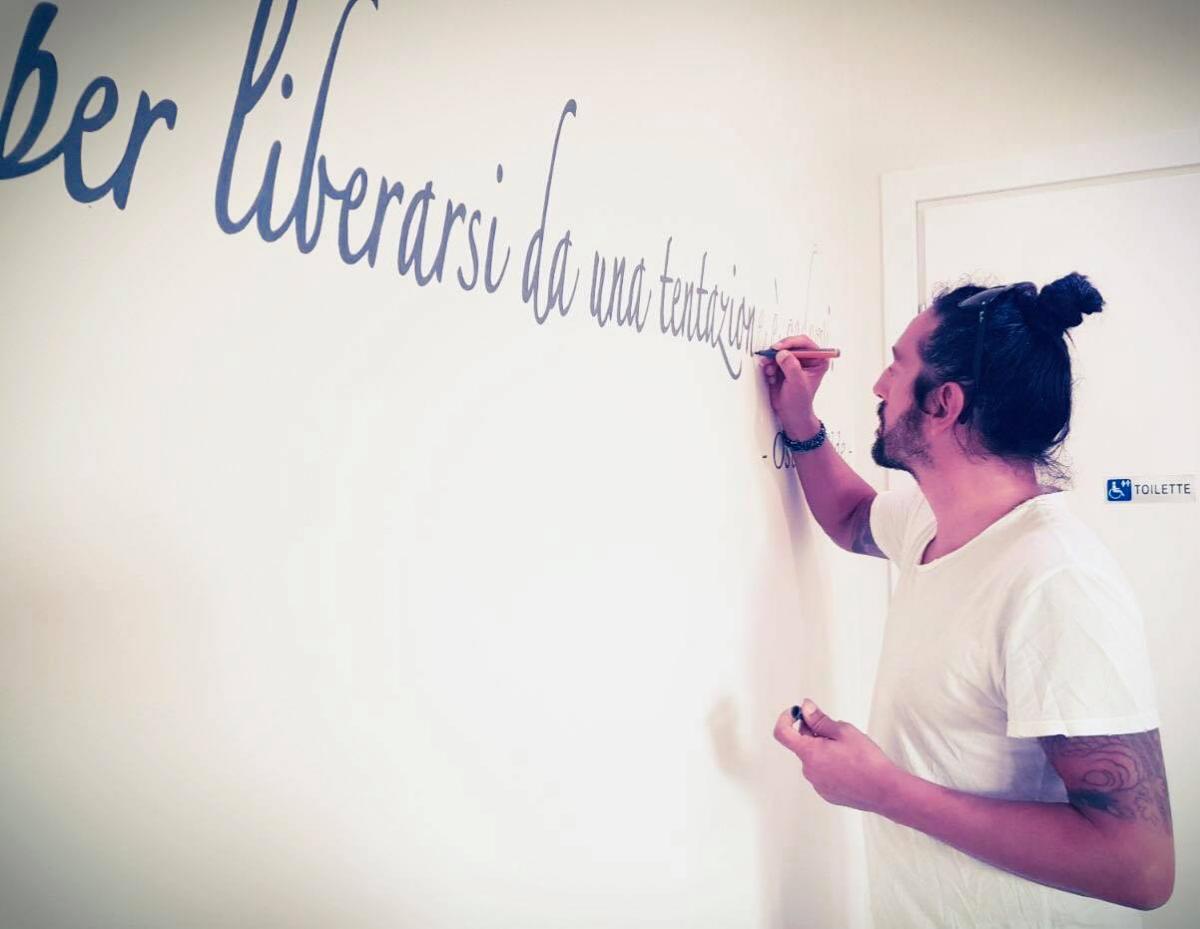 per liberarsi da una tentazione è
TOILETTE